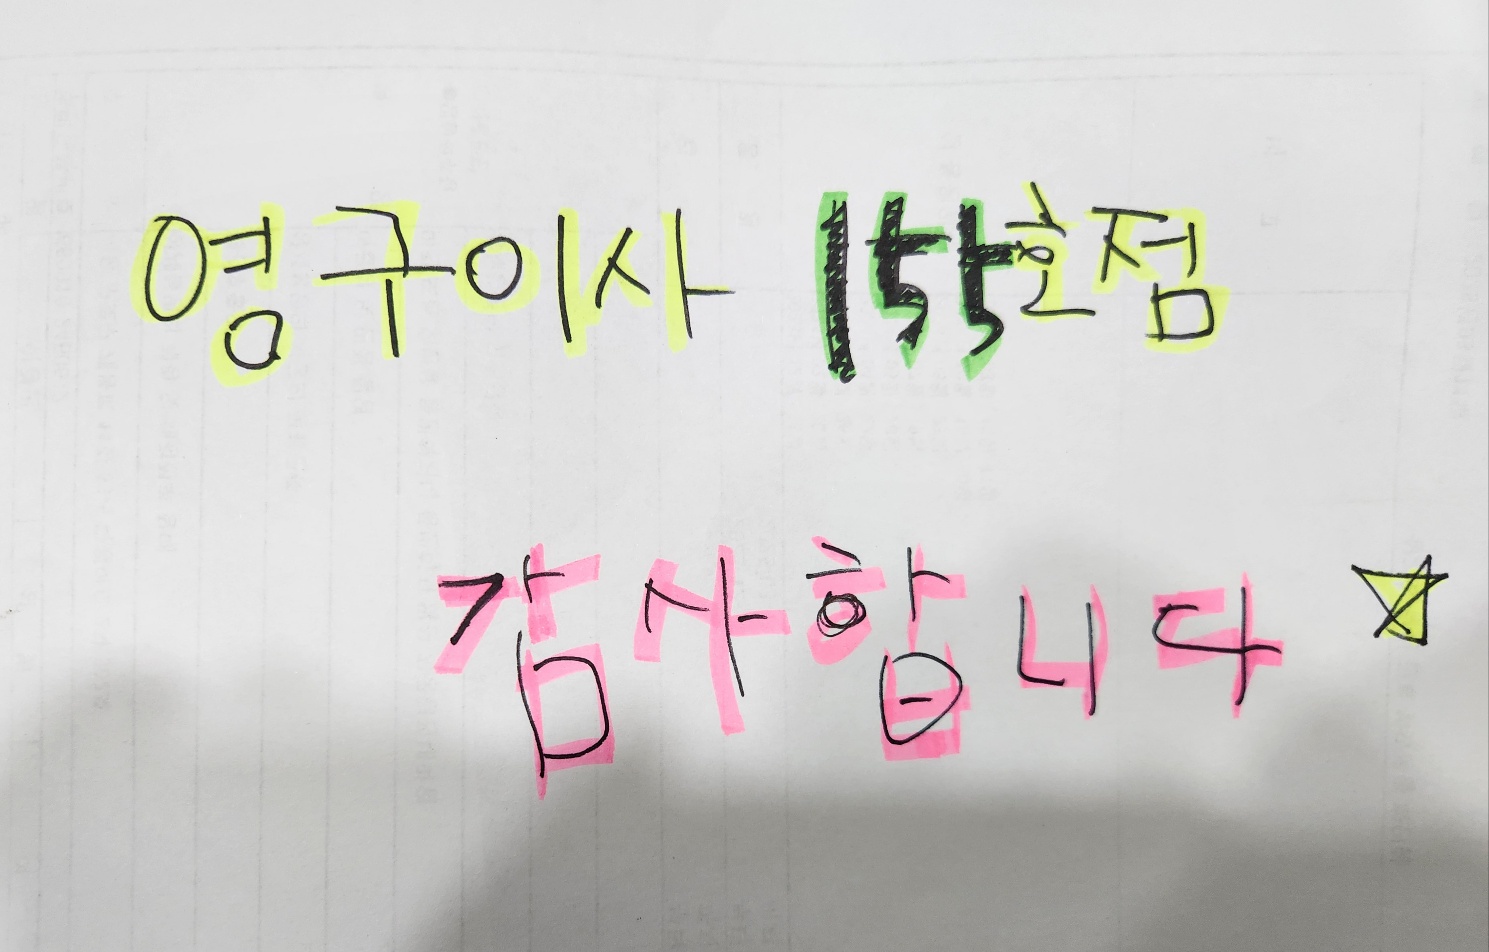 영구이사 155호점
감사합니다 ☆